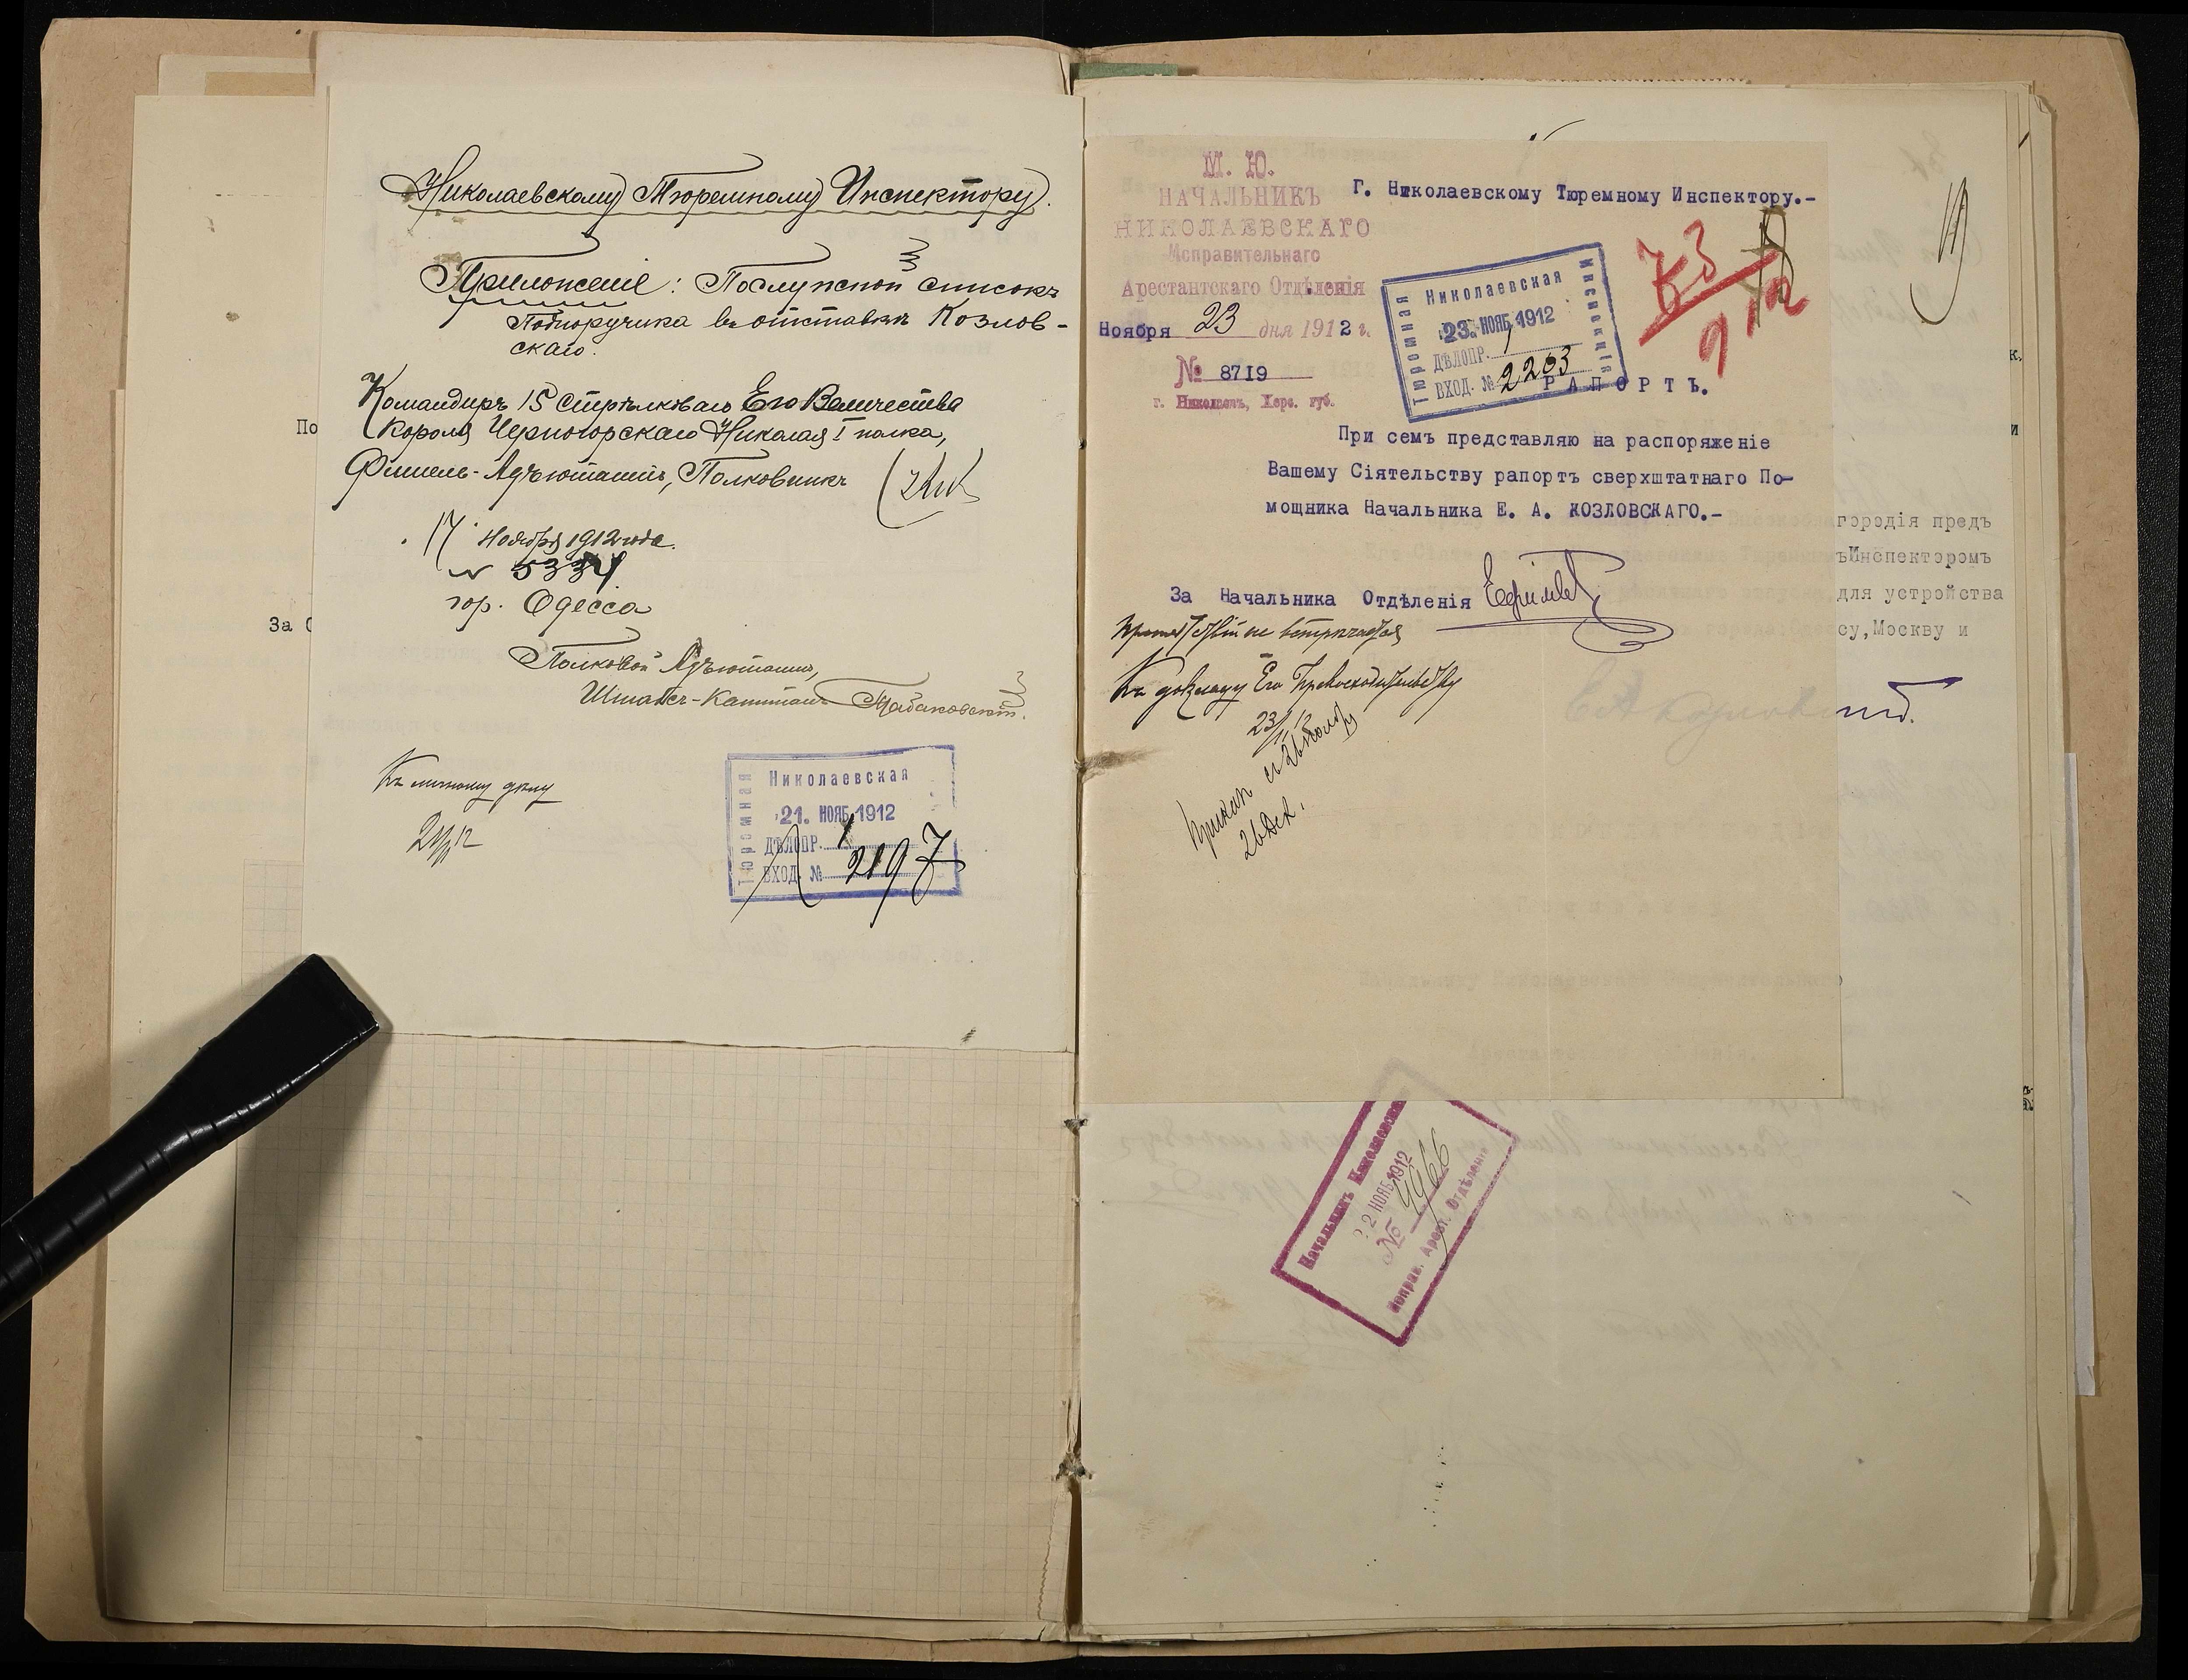 Николаевскому Тюремному Инспектору.
Приложеніе: Послужной списокъ
Подпоручика въ отставкѣ Козлов-
скаго.
Командиръ 15 Стрѣлковаго Его Величества
Короля Черногорскаго Николая I полка,
Флигель-Адъютантъ, Полковникъ
17 Ноября 1912 года.
№ 5334
гор. Одесса
Полковой Адъютантъ,
Штабсъ-Капитанъ
Къ личному дѣлу
21/XI 12
Николаевская
Тюремная
21. НОЯБ. 1912
ДѢЛОПР. 1
ВХОД. № 2197
По
За
М. Ю.
НАЧАЛЬНИКЪ
НИКОЛАЕВСКАГО
Исправительнаго
Арестантскаго Отдѣленія
Ноября 23 дня 1912 г.
№ 8719
г. Николаевъ, Херс. губ.
Г. Николаевскому Тюремному Инспектору.-
Николаевская
Тюремная
Инспекція
23. НОЯБ. 1912
ДѢЛОПР. 1
ВХОД. № 2203
РАПОРТЪ.
При семъ представляю на распоряженіе
Вашему Сіятельству рапортъ сверхштатнаго По-
мощника Начальника Е. А. КОЗЛОВСКАГО.-
За Начальника Отдѣленія
Къ докладу Его Превосходительству
23/XI 12
26 Дек.
городія предъ
ъИнспекторомъ
для устройства
су,Москву и
к.
и
Начальникъ Николаевск
22 НОЯБ 1912
№ 9966
Исправ. Арест. Отдѣленія